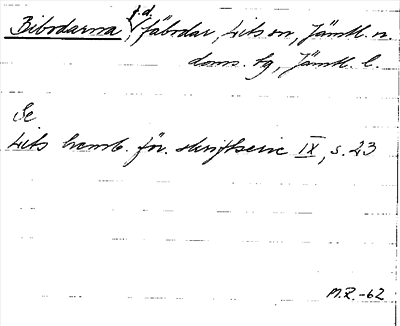 Bibodarna, f.d. fäbodar, Lits sn, Jämtl. n.
doms. tg, Jämtl. l.
Se
Lits hemb. för. skriftserie IX, s. 23
M.Z.-62